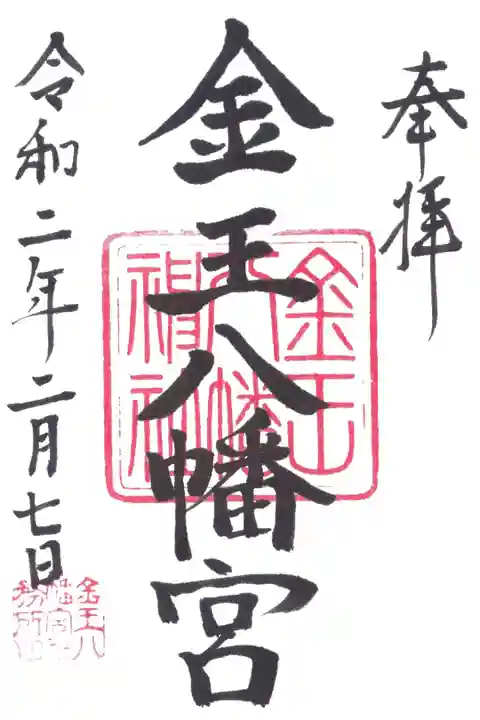 奉拝
金王八幡宮
令和二年二月七日
金王八幡神社
金王八幡宮社務所印